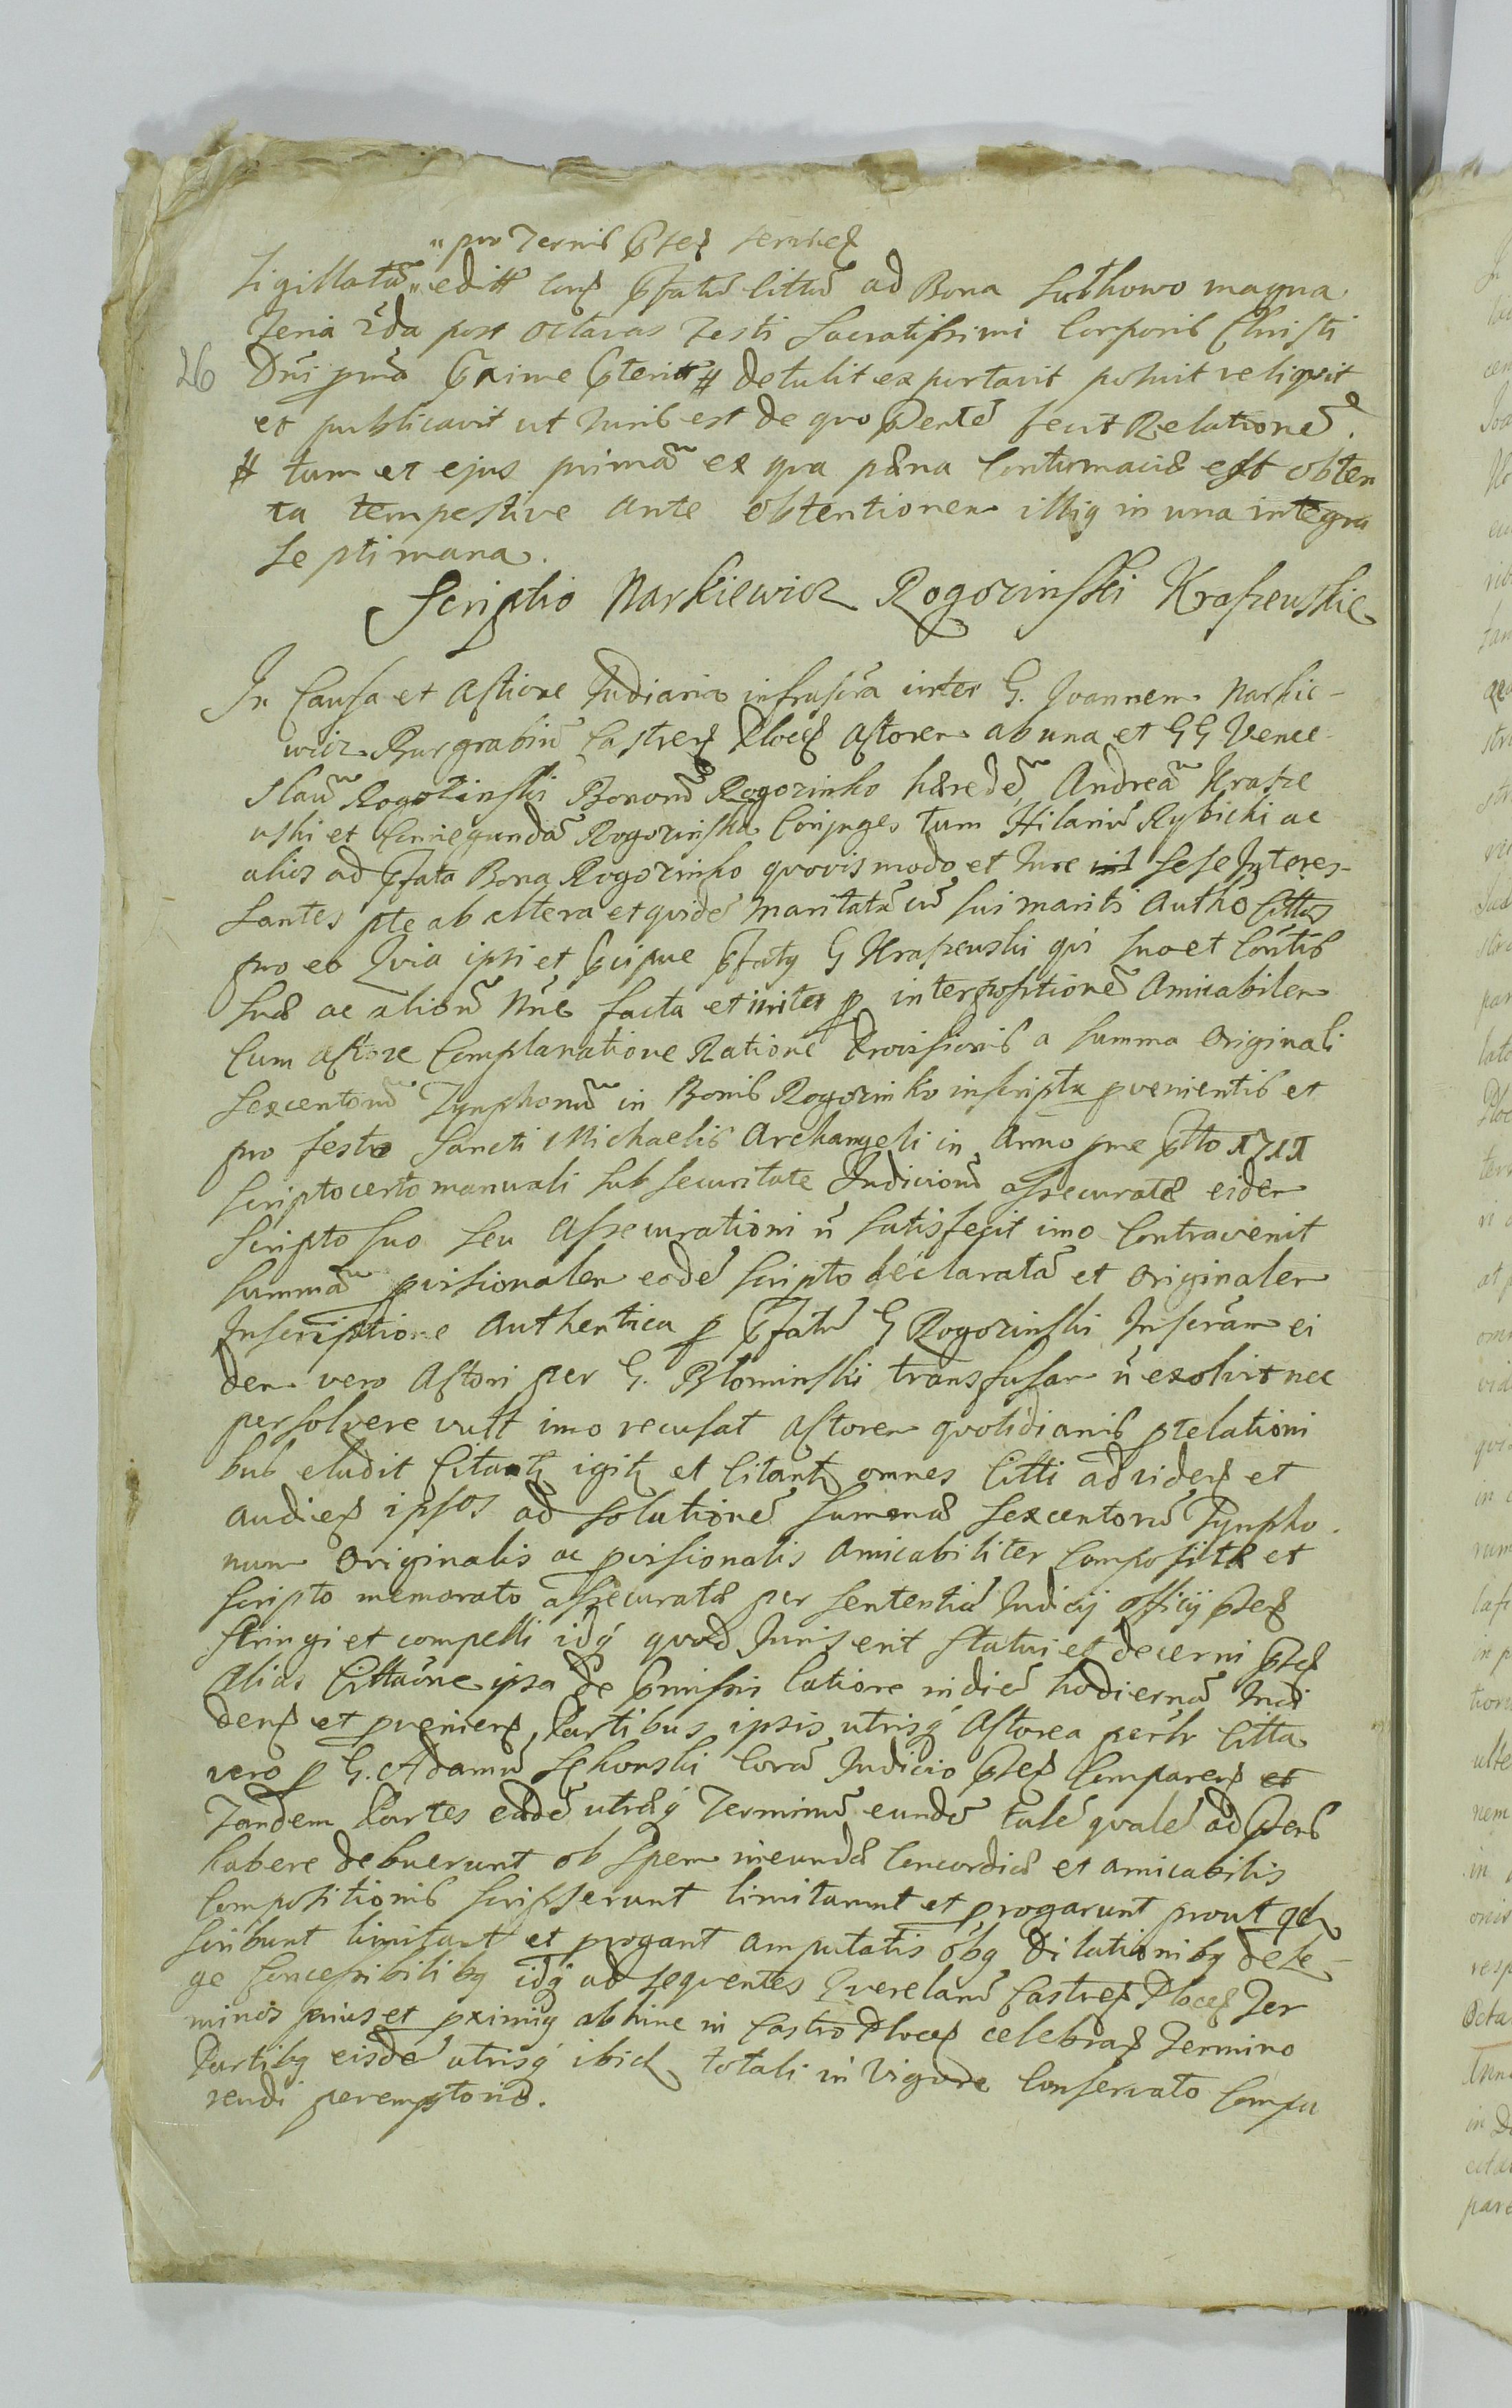 "pro Ternis pñtes
Sigillatã " edit Cons pfatũ littũ ad Bona Luthowo magna
Feria 2da post octavas Festi Sacratissimi Corporis Christi
26
Dñi pmã pxime pterit # detulit exportavit posuit reliqvit
et publicavit ut Juris est de qvo pente fecit Relationẽ.
# tum et ejus primã ex qva pæna Contumaciæ est obten
ta tempestive ante obtentionem illiq in una integra
septimana.
Scriptio Narkiewicz Rogozinski Kraszewskie
In Causa et Actione Judiaria infrascra inter G. Joannem Narkie-
wicz Burgrabiũ Castren Ploceñ Actorem ab una et GG Vence
slaũ Rogozinski Bonorũ Rogozinko hæredẽ, Andreã Krasze
uski et Cuniegundã Rogozinska Conjuges tum Hilariũ Rybicki ac
alios ad pfata Bona Rogozinko qvovis modo et Jure sese Interes-
santes pte ab altera et qvidẽ maritatã cũ sui mariti Autho Cittos
pro eo Qvia ipsi et pcipue pfatq G Kraszeuski qvi suo et Contis
suæ ac aliorũ nñe facta et inita p interpositionẽ Amicabilem
Cum Actore Complanatione Ratione Provisionis a summa Originali
sexcentorũ Tynphorũ in Bonis Rogozinko inscripta pvenientis et
pro festo Sancti Michaelis Archangeli in Anno pne ptto 1711
scripto certo manuali sub securitate Judiciorũ assecuratæ eidem
scripto suo seu Assecurationi ñ satisfecit imo Contravenit
summã pvisionalem eodẽ scripto declaratã et Originalem
Inscriptione Authentica p pfatũ G Rogozinski Inscrãm ei
dem vero Actori per G. Blominski transfusam ñ exolvit nec
persolvere vult imo recusat Actorem qvotidianis ptelationi
bus eludit Citantq igitq et Citantq omnes Citti ad viden et
audien ipsos ad solutionẽ summæ sexcentorũ Tynpho
rum Originalis ac pvisionalis Amicabiliter Compositæ et
scripto memorato assecuratæ per sententiã Judicij officij pñs
stringi et compelli idq qvod Juris erit statui et decerni pñs
Alias Cittãone ipsa de pmissis latiore in diẽ hodiernã Inci
den et pvenien, Partibus ipsis utrisq Actorea perslr Citta
vero p G. Adamũ Sekowski Corã Judicio pñs Comparen
Tandem Partes eædẽ utræq Terminũ eundẽ talẽ qvalẽ ad pens
habere debuerunt ob spem ineundæ Concordiæ et amicabilis
Compositionis scripserunt limitarunt et progarunt prout qdm
scribunt limitant et progant amputatis obq dilationibq de Le-
ge Concessibilibq idq ad seqventes Qverelarũ Castren Plocen Ter
minos prius et pximiq abhinc in Castro Plocen celebran Termino
Partibq eisdẽ utrisq ibid totali in Vigore Conservato Compa
rendi peremptorio.